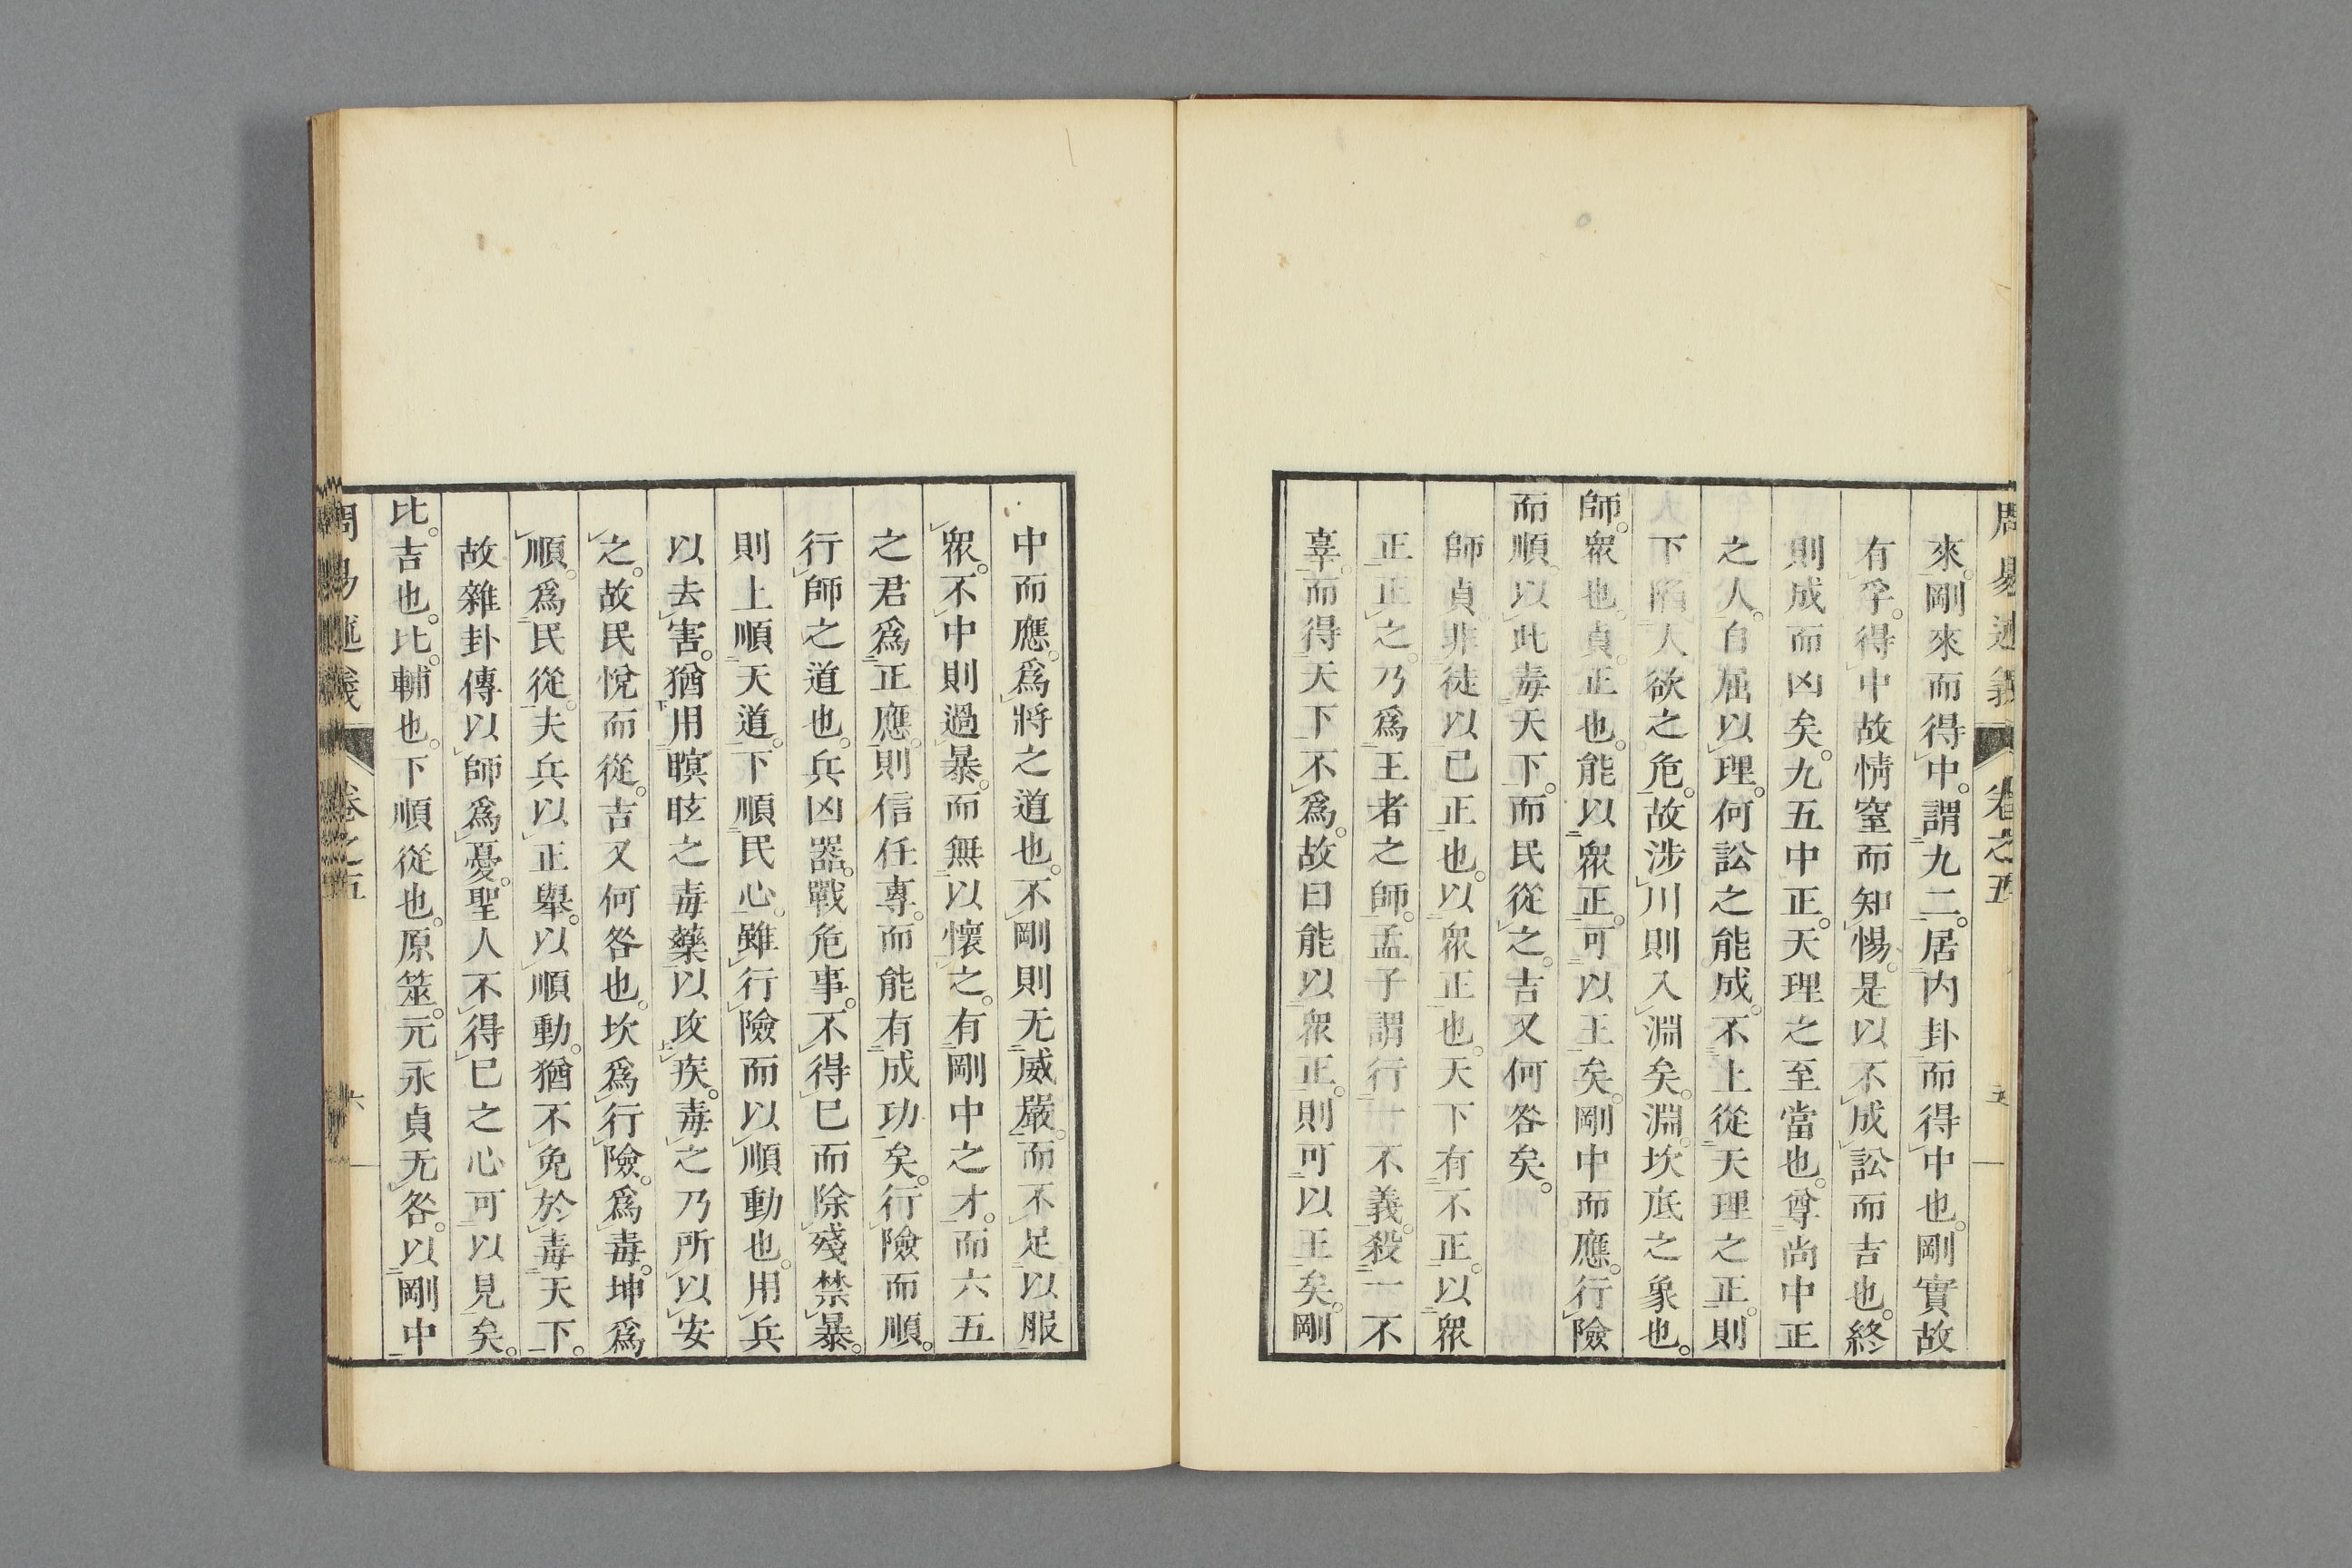 周易述義 卷之五 五
來。剛來而得中。謂九二。居内卦而得中也。剛實故
有孚。得中故情窒而知惕。是以不成訟而吉也。終
則成而凶矣。九五中正。天理之至當也。尊尚中正
之人。自屈以理。何訟之能成。不上從天理之正。則
下陷人欲之危。故涉川則入淵矣。淵。坎底之象也。
師。衆也。貞。正也。能以衆正。可以王矣。剛中而應。行險
而順。以此毒天下。而民從之。吉又何咎矣。
師貞非徒以已正也。以衆正也。天下有不正。以衆
正正之。乃爲王者之師。孟子謂行一不義。殺一不
辜。而得天下不爲。故曰能以衆正。則可以王矣。剛
中而應。爲將之道也。不剛則无威嚴。而不足以服
衆。不中則過暴。而無以懷之。有剛中之才。而六五
之君爲正應。則信任專。而能有成功矣。行險而順。
行師之道也。兵凶器。戰危事。不得已而除殘禁暴。
則上順天道。下順民心。雖行險而以順動也。用兵
以去害。猶用瞑眩之毒藥以攻疾。毒之乃所以安
之。故民悅而從。吉又何咎也。坎爲行險。爲毒。坤爲
順。爲民從。夫兵以正舉。以順動。猶不免於毒天下。
故雜卦傳以師爲憂。聖人不得已之心可以見矣。
比。吉也。比。輔也。下順從也。原筮。元永貞无咎。以剛中
周易述義 卷之五 六